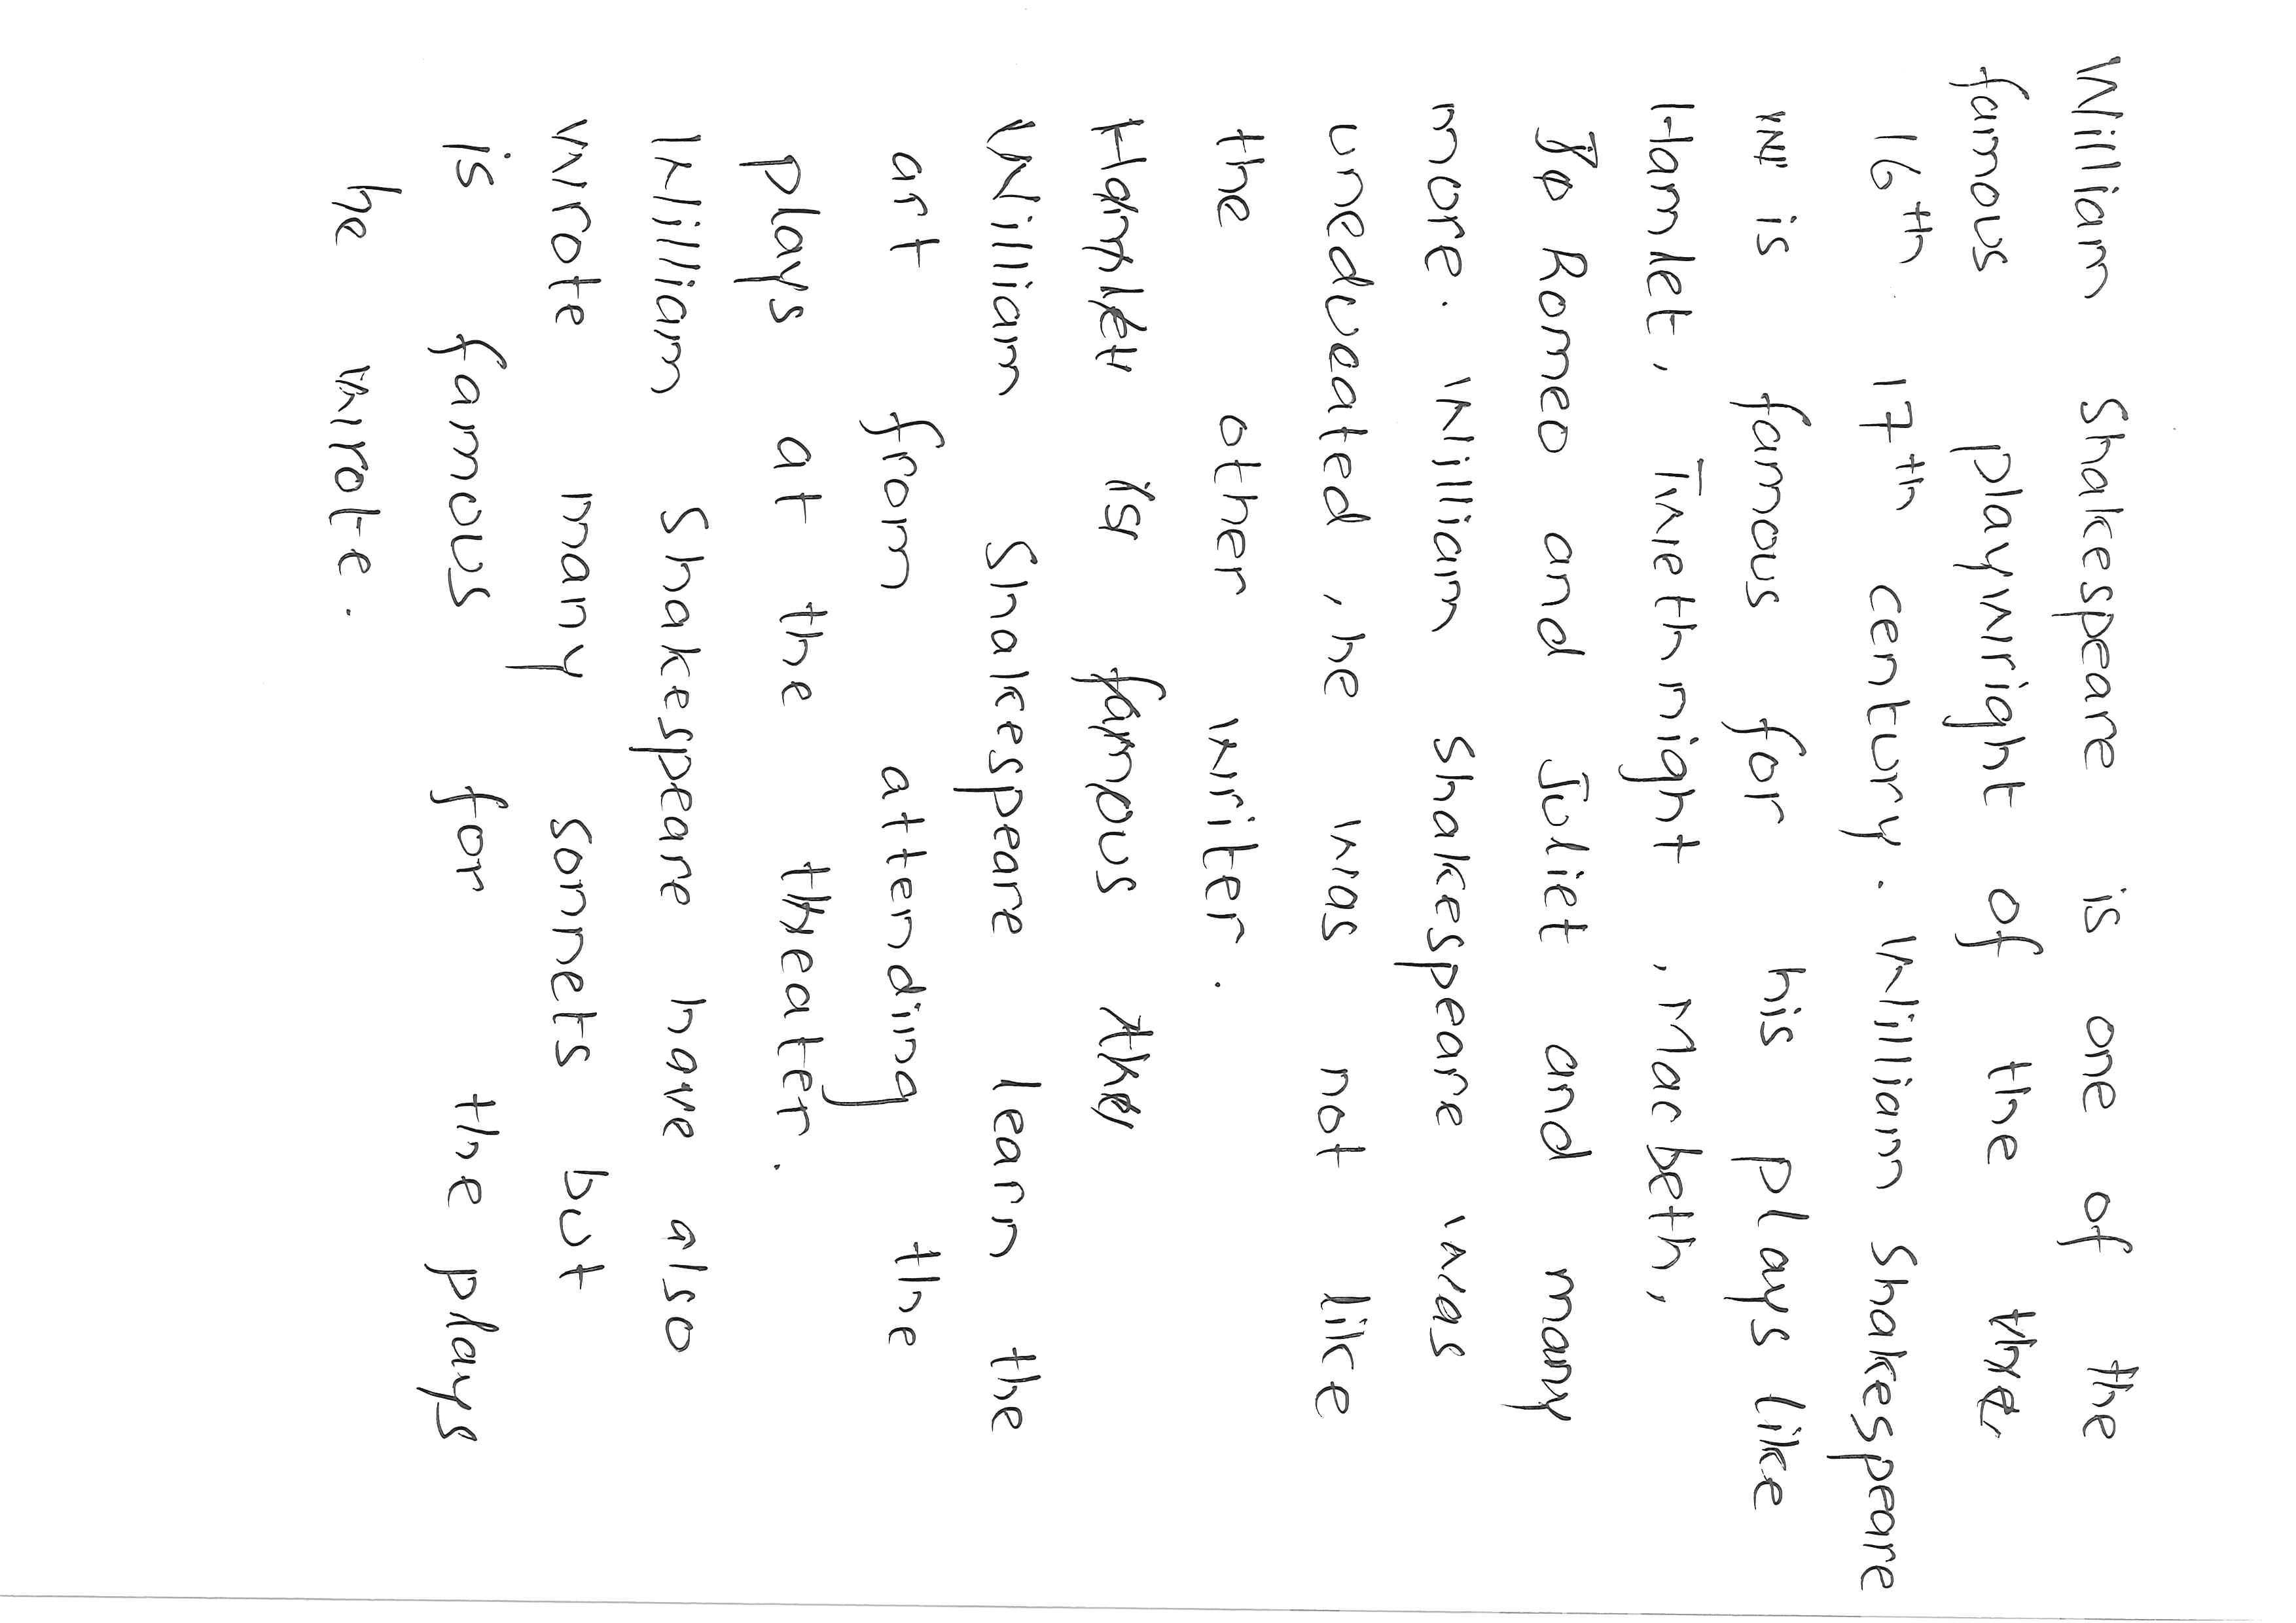 William Shakespeare is one of the
famous playwright of the the
16th 17th century. William Shakespeare
is famous for his plays like
Hamlet, Twethnight , Macbeth,
Romeo and Juliet and many
more. William Shakespeare was
uneducated , he was not like
the other writer.
Hamlet is famous the
William Shakespeare learn the
art from attending the
plays at the theater.
William Shakespeare have also
wrote many sonnets but
is famous for the plays
he wrote.